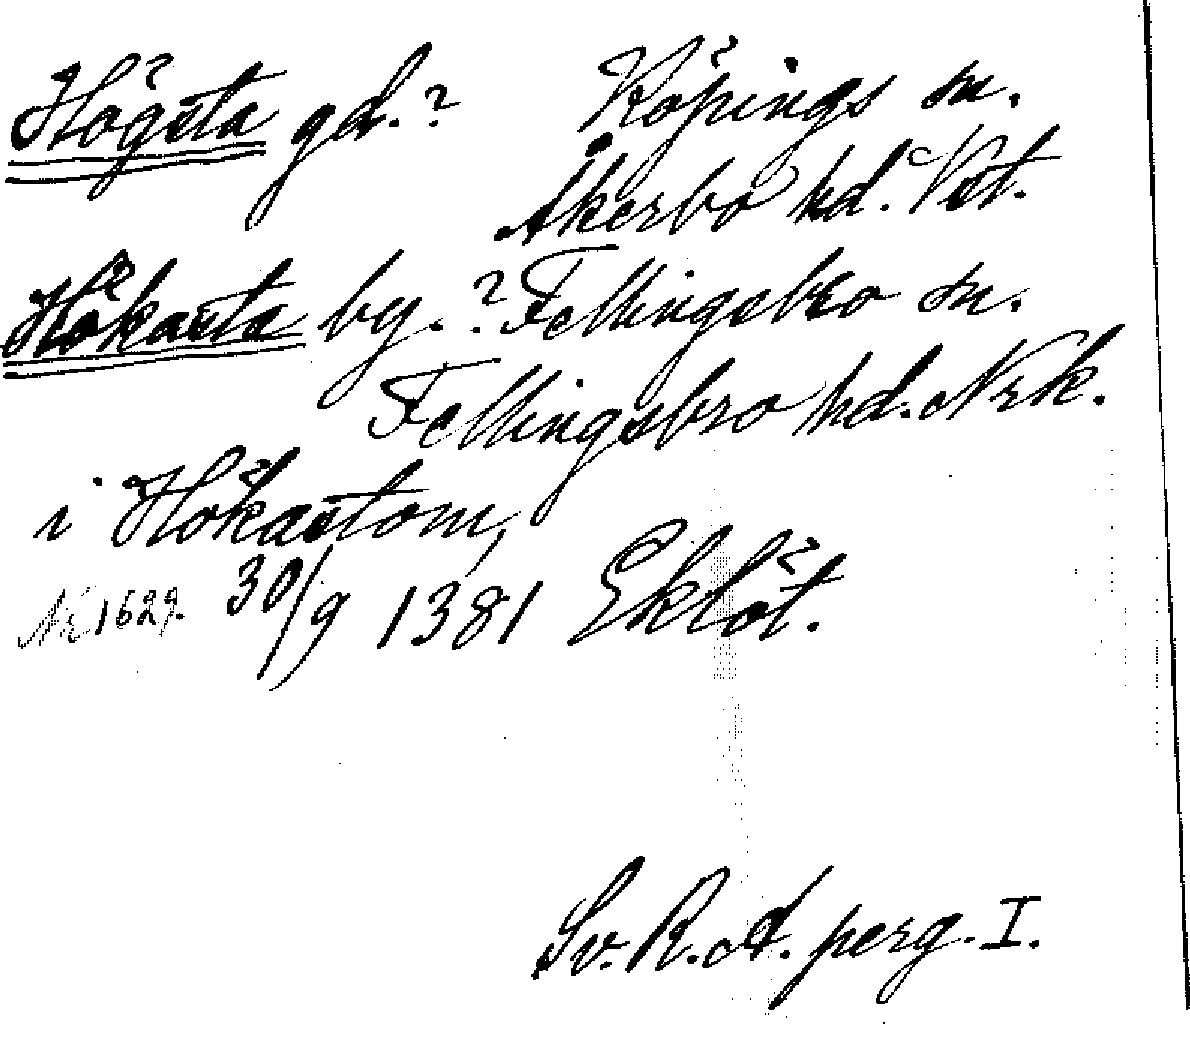 Högsta gd.? Köpings sn.
Åkerbo hd. Vst.
Hökasta by.? Fellingsbro sn.
Fellingsbro hd. Nrk.
i Hökastom,
Nr 1629. 30/9 1381 Eklöt.
Sv. R. A. perg. I.